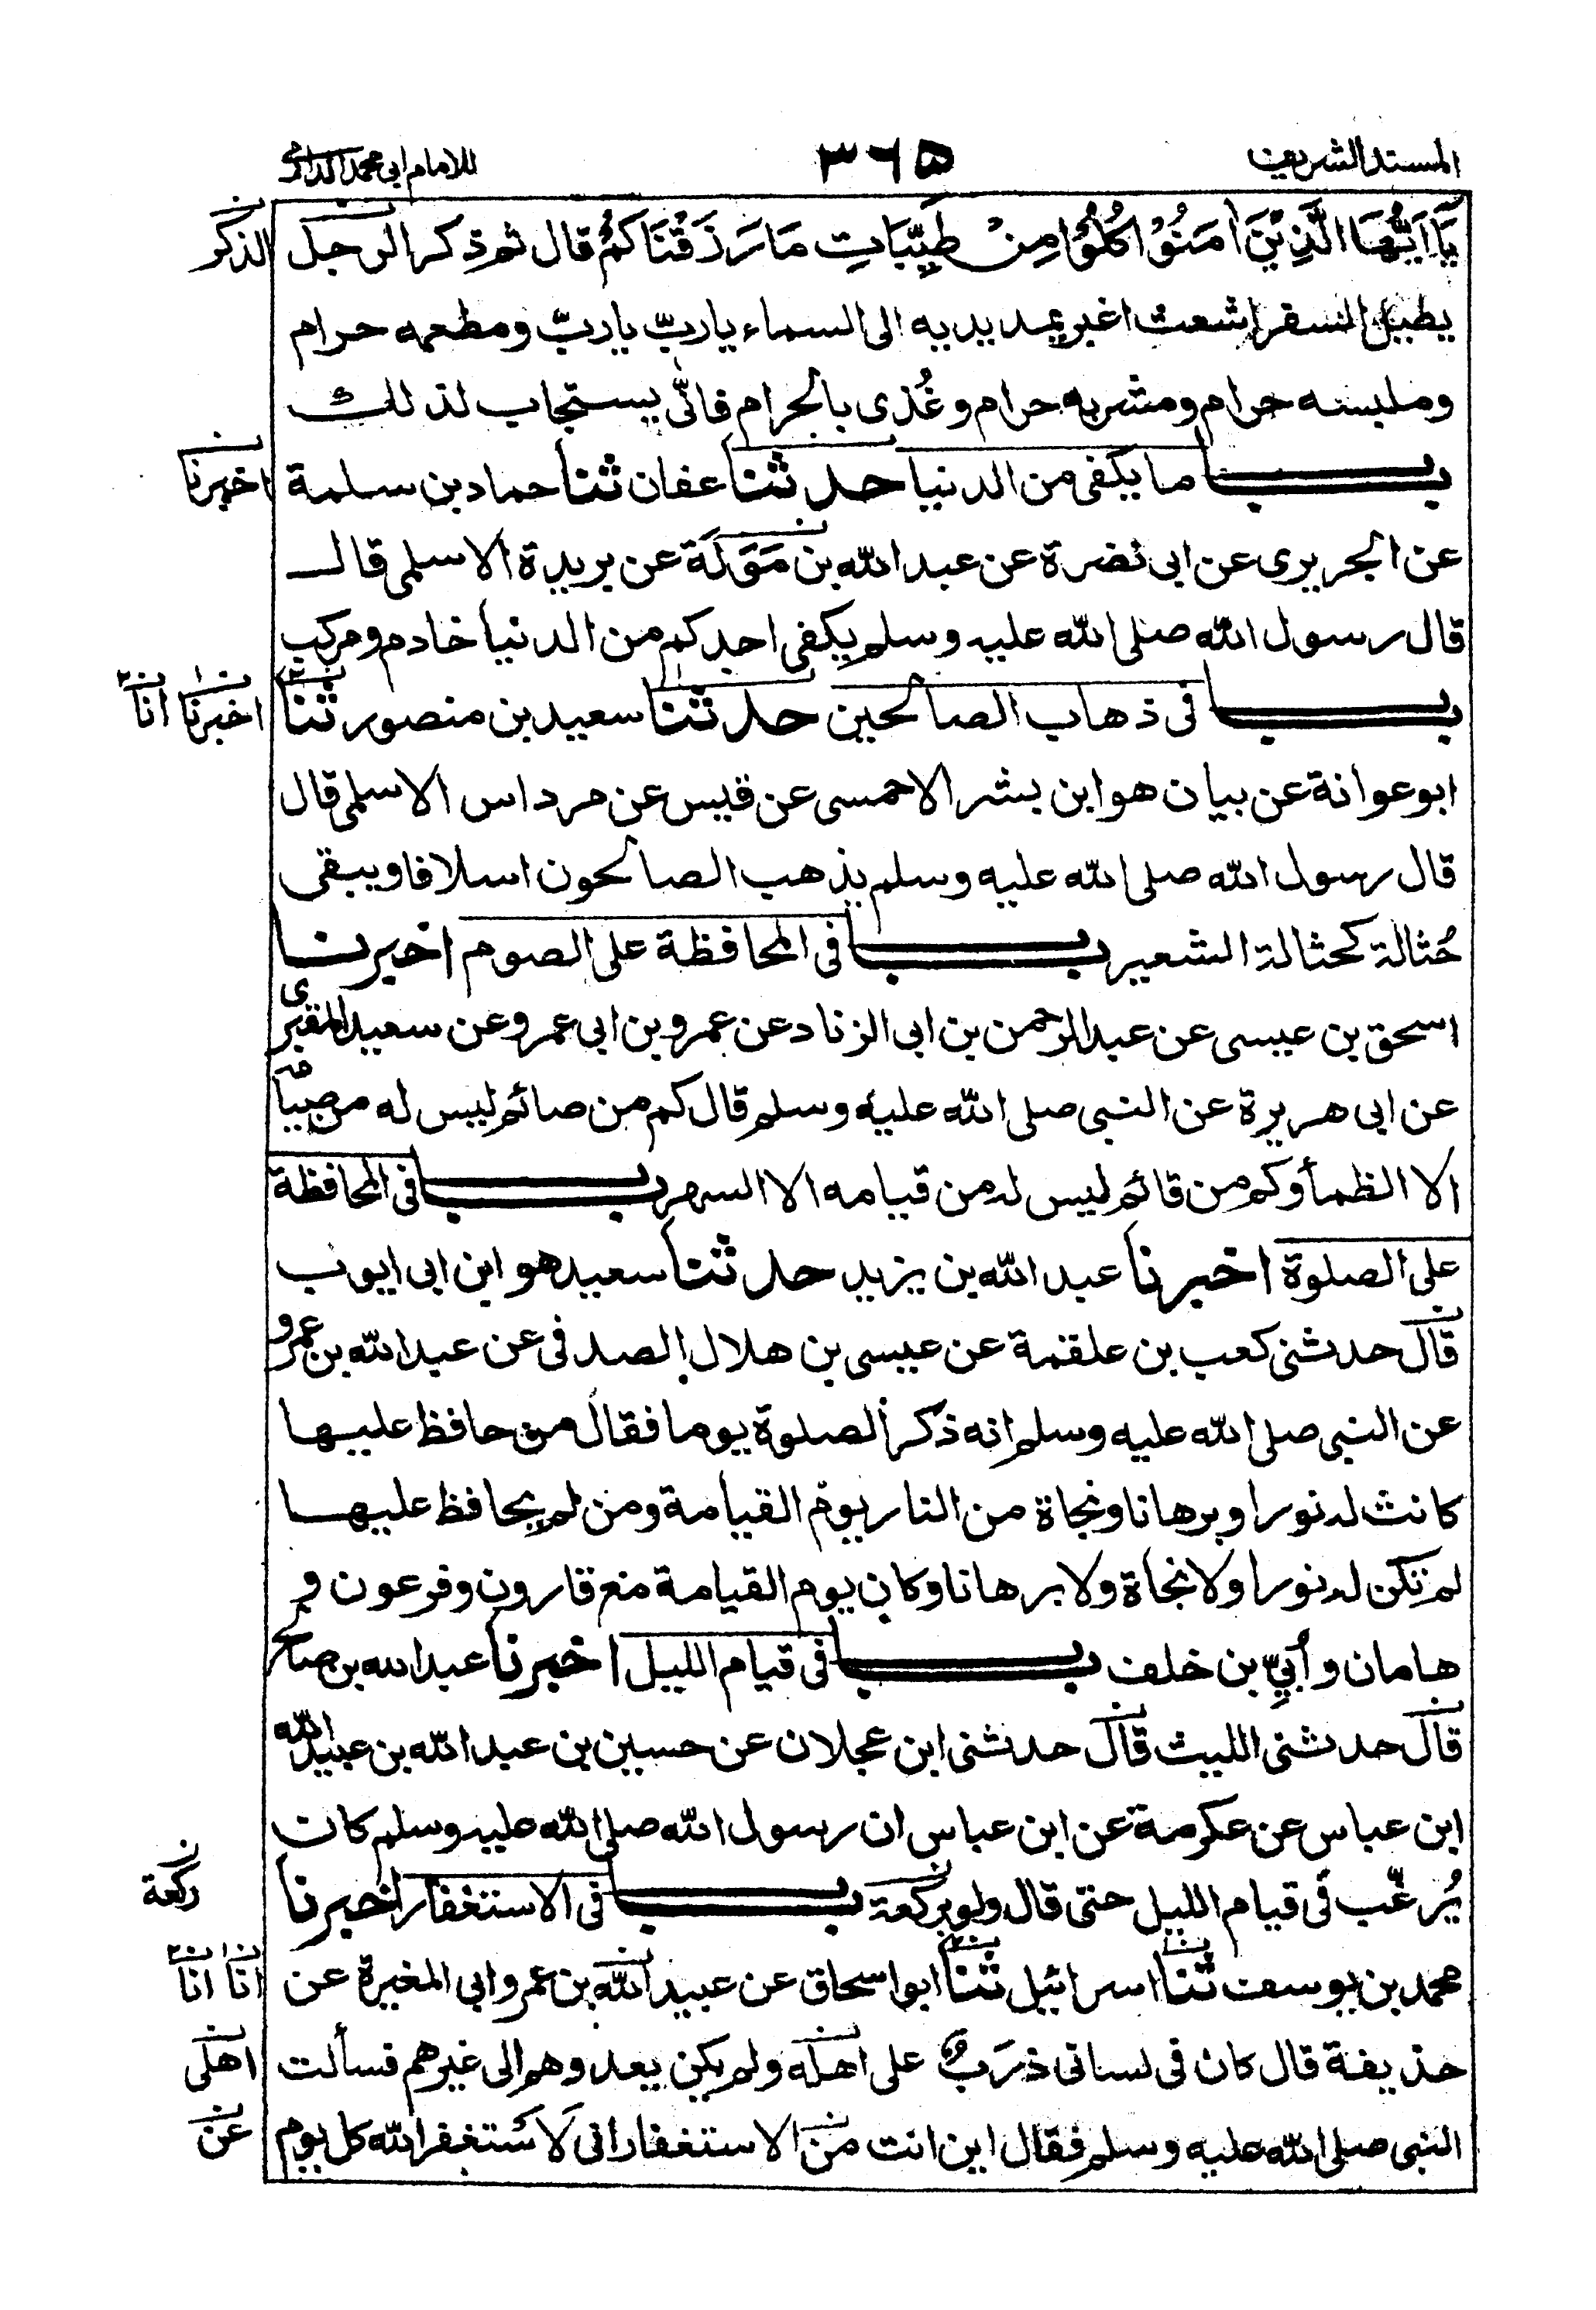 المسند الشريف ٣٦٥ للامام ابى محمد الدارمى
يَا اَيُّهَا الَّذِيْنَ اٰمَنُوْا كُلُوْا مِنْ طَيِّبَاتِ مَا رَزَقْنَاكُمْ قال ثم ذكر الرجل
الذكر
يطيل السفر اشعث اغبر يمد يديه الى السماء يا ربّ يا ربّ ومطعمه حرام
وملبسه حرام ومشربه حرام وغُذى بالحرام فانّى يستجاب لذلك
باب ما يكفى من الدنيا حدثنا عفان ثنا حماد بن سلمة
اخبرنا
عن الجريرى عن ابى نضرة عن عبد الله بن مَوَلَة عن بريدة الاسلمى قال
قال رسول الله صلى الله عليه وسلم يكفى احدكم من الدنيا خادم ومركب
باب فى ذهاب الصالحين حدثنا سعيد بن منصور ثنا
اخبرنا انا
ابو عوانة عن بيان هو ابن بشر الاحمسى عن قيس عن مرداس الاسلمى قال
قال رسول الله صلى الله عليه وسلم يذهب الصالحون اسلافا ويبقى
حُثالة كحثالة الشعير باب فى المحافظة على الصوم اخبرنا
اسحق بن عيسى عن عبد الرحمن بن ابى الزناد عن عمرو بن ابى عمرو عن سعيد المقبرى
عن ابى هريرة عن النبى صلى الله عليه وسلم قال كم من صائم ليس له من صيامه
الا الظمأ وكم من قائم ليس له من قيامه الا السهر باب فى المحافظة
على الصلوة اخبرنا عبد الله بن يزيد حدثنا سعيد هو ابن ابى ايوب
قال حدثنى كعب بن علقمة عن عيسى بن هلال الصدفى عن عبد الله بن عمرو
عن النبى صلى الله عليه وسلم انه ذكر الصلوة يوما فقال من حافظ عليها
كانت له نورا وبرهانا ونجاة من النار يوم القيامة ومن لم يحافظ عليها
لم تكن له نورا ولا نجاة ولا برهانا وكان يوم القيامة مع قارون وفرعون و
هامان وأُبيّ بن خلف باب فى قيام الليل اخبرنا عبد الله بن صالح
قال حدثنى الليث قال حدثنى ابن عجلان عن حسين بن عبد الله بن عبيد الله
ابن عباس عن عكرمة عن ابن عباس ان رسول الله صلى الله عليه وسلم كان
يُرغّب فى قيام الليل حتى قال ولو بركعة باب فى الاستغفار اخبرنا
ركعة
محمد بن يوسف ثنا اسرائيل ثنا ابو اسحاق عن عبيد الله بن عمرو ابى المغيرة عن
انا انا
حذيفة قال كان فى لسانى ذرَبٌ على اهله ولم يكن يعدوهم الى غيرهم فسألت
اهلى
النبى صلى الله عليه وسلم فقال اين انت من الاستغفار انى لَاَستغفر الله كل يوم
عن